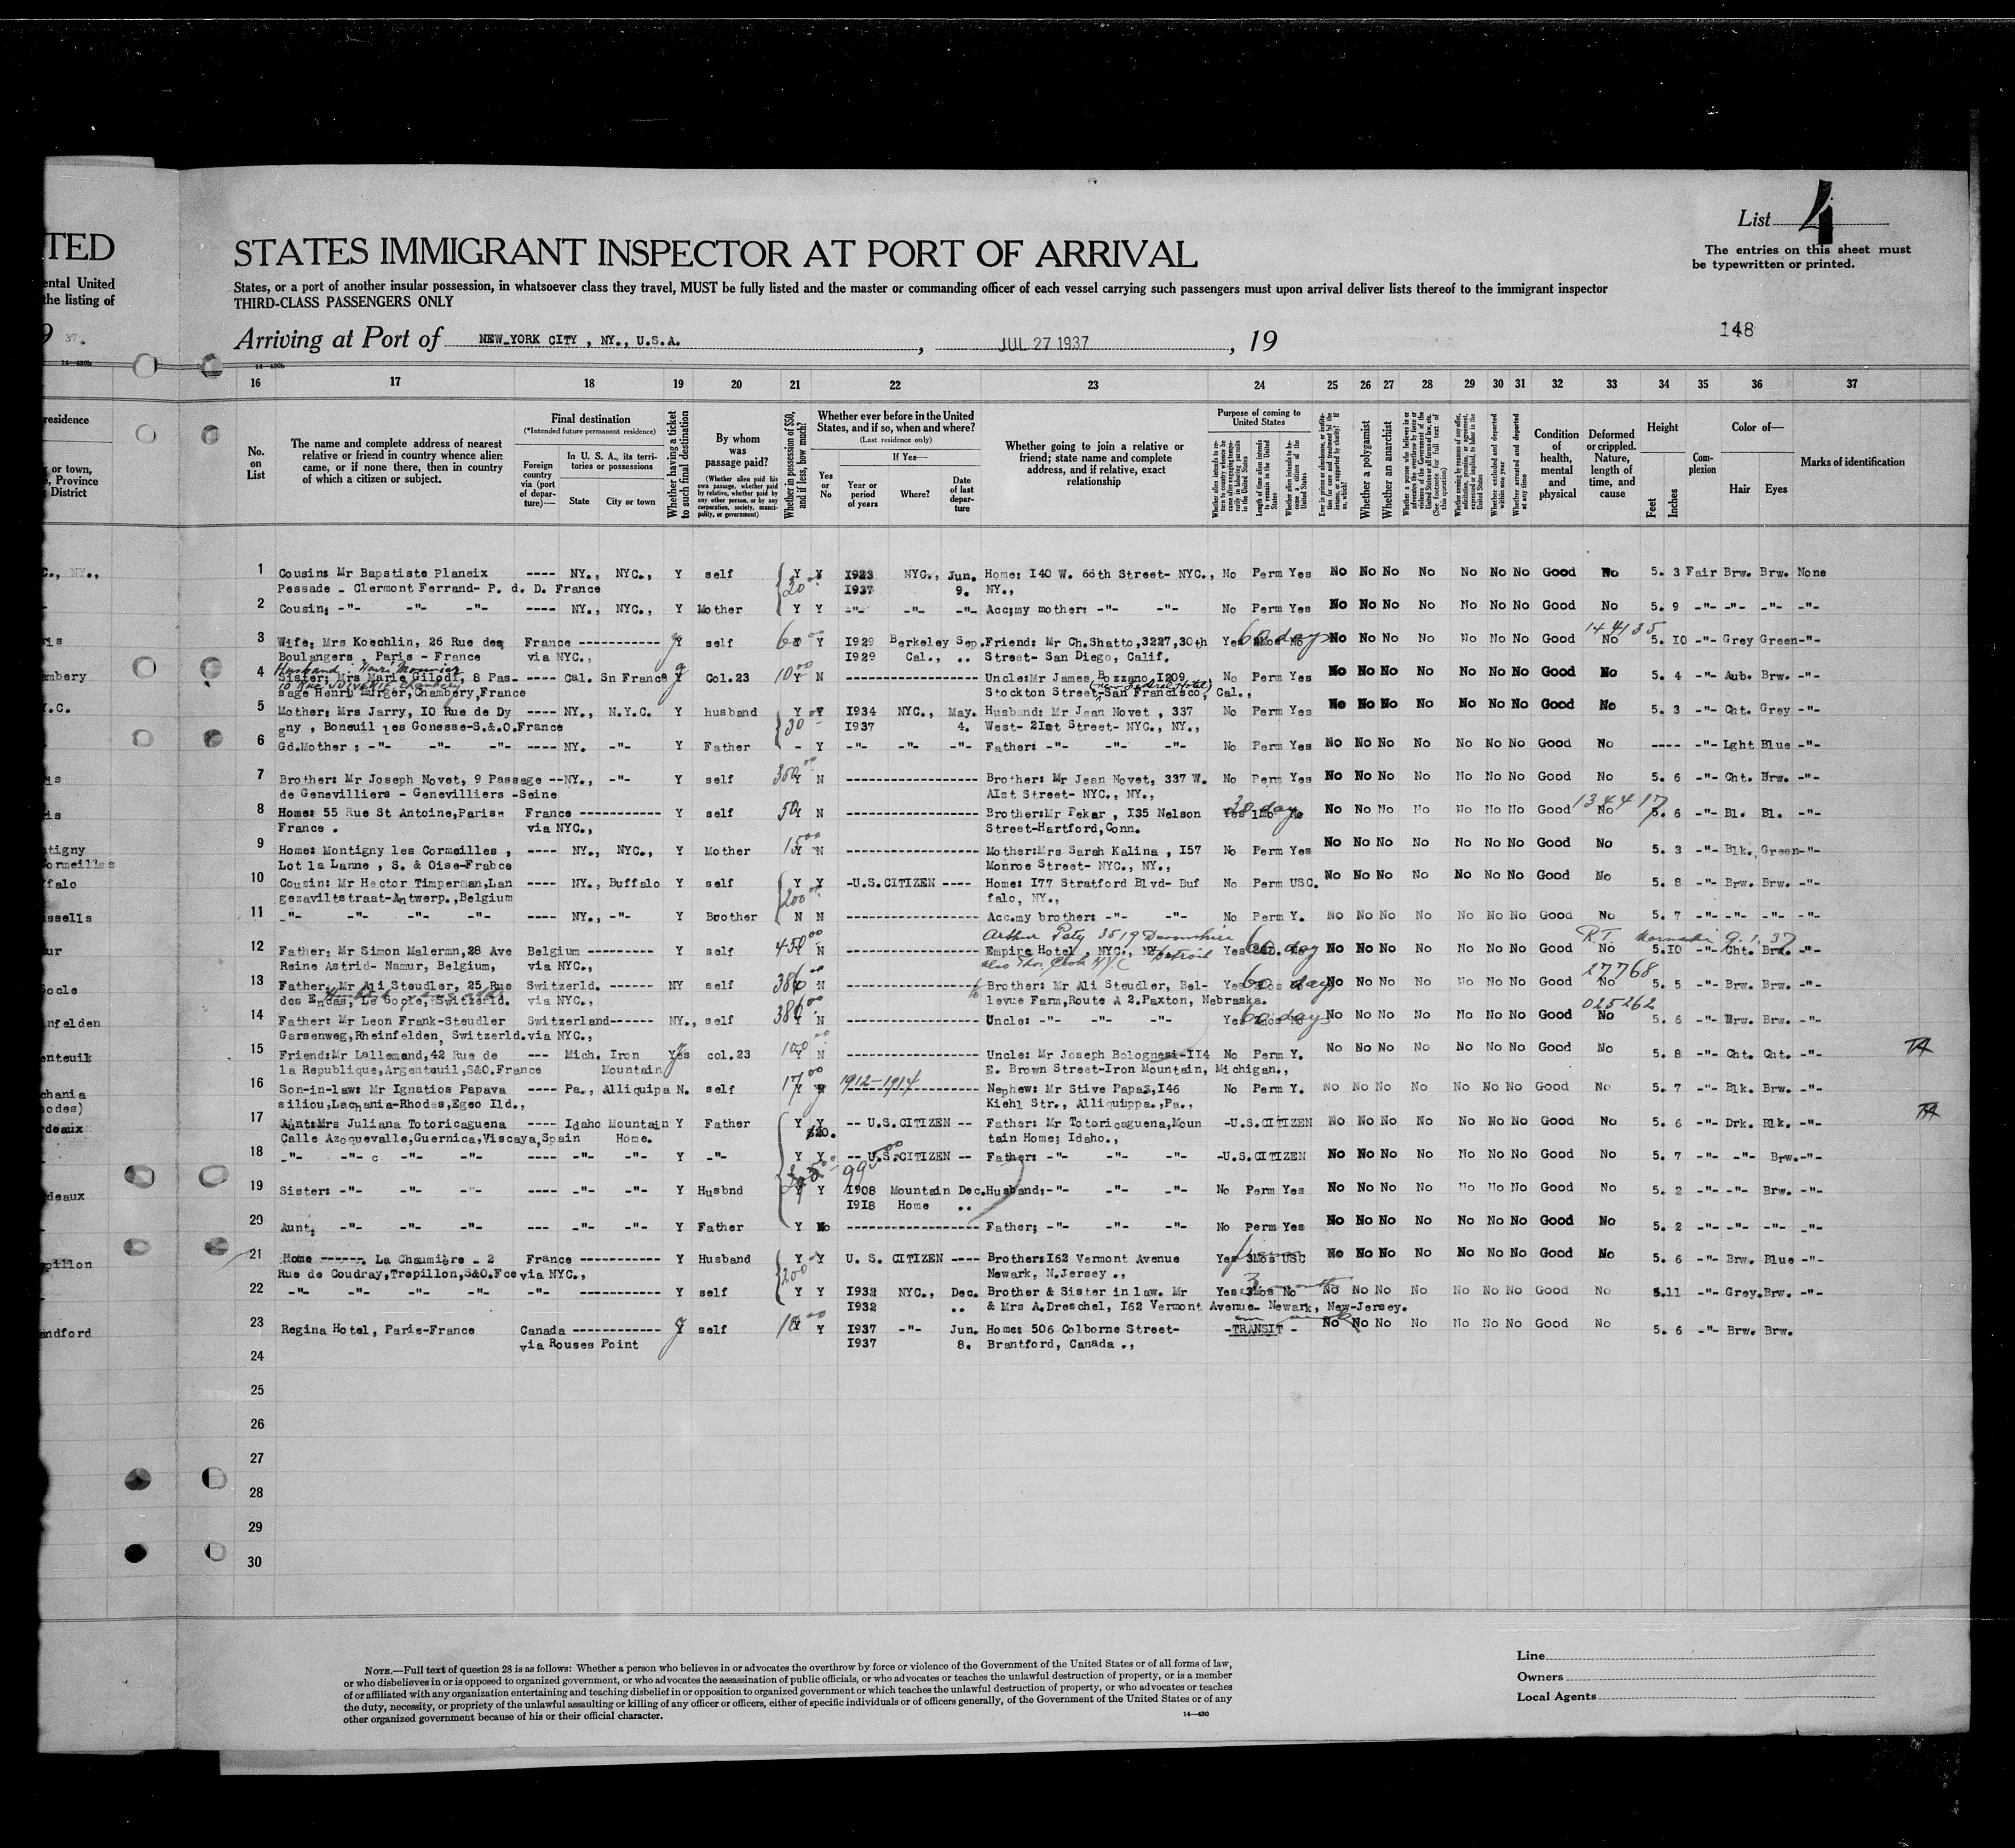 TED
ental United
the listing of
9 37.
14—430b
residence
or town,
, Province
District
C., NY.,
ris
ambery
Y.C.
is
is
tigny
ormeilles
falo
ussells
ur
ocle
nfelden
enteuil
chania
hodes)
deaux
deaux
pillon
andford
List 4
STATES IMMIGRANT INSPECTOR AT PORT OF ARRIVAL
The entries on this sheet must
be typewritten or printed.
States, or a port of another insular possession, in whatsoever class they travel, MUST be fully listed and the master or commanding officer of each vessel carrying such passengers must upon arrival deliver lists thereof to the immigrant inspector
THIRD-CLASS PASSENGERS ONLY
Arriving at Port of NEW YORK CITY , NY., U.S.A. , JUL 27 1937 , 19
148
14—430b
16 17 18 19 20 21 22 23 24 25 26 27 28 29 30 31 32 33 34 35 36 37
No. on List
The name and complete address of nearest relative or friend in country whence alien came, or if none there, then in country of which a citizen or subject.
Final destination
(*Intended future permanent residence)
Foreign country via (port of departure)—
In U. S. A., its territories or possessions
State
City or town
Whether having a ticket to such final destination
By whom was passage paid?
(Whether alien paid his own passage, whether paid by relative, whether paid by any other person, or by any corporation, society, municipality, or government)
Whether in possession of $50, and if less, how much?
Whether ever before in the United States, and if so, when and where?
(Last residence only)
Yes or No
If Yes—
Year or period of years
Where?
Date of last departure
Whether going to join a relative or friend; state name and complete address, and if relative, exact relationship
Purpose of coming to United States
Length of time alien intends to remain in the United States
Whether alien intends to become a citizen of the United States
Whether a polygamist
Whether an anarchist
Whether excluded and deported within one year
Whether arrested and deported at any time
Condition of health, mental and physical
Deformed or crippled. Nature, length of time, and cause
Height
Feet
Inches
Complexion
Color of—
Hair
Eyes
Marks of identification
1 Cousin: Mr Bapstiste Planeix ---- NY., NYC., Y self Y Y I923 NYC., Jun. Home: I40 W. 66th Street- NYC., No Perm Yes No No No No No No No Good No 5. 3 Fair Brw. Brw. None
Pessade - Clermont Ferrand- P. d. D. France 20 I937 9. NY.,
2 Cousin; -"- -"- -"- ---- NY., NYC., Y Mother Y Y -"- -"- -"- Acc;my mother: -"- -"- No Perm Yes No No No No No No No Good No 5. 9 -"- -"- -"- -"-
3 Wife; Mrs Koechlin, 26 Rue des France ----------- Y self 60 Y I929 Berkeley Sep. Friend: Mr Ch.Shatto,3227,30th Yes 60 days No No No No No No No No Good 144135 No 5. IO -"- Grey Green-"-
Boulangers , Paris - France via NYC., I929 Cal., .. Street- San Diego, Calif.
Husband: Henri Mounier
4 Sister; Mrs Marie Gilodi, 8 Pas- ---- Cal. Sn France Y Col.23 10 Y N ----------------- Uncle:Mr James Bozzano I209 No Perm Yes No No No No No No No Good No 5. 4 -"- Aub. Brw. -"-
sage Henri Murger,Chambery,France Stockton Street,-San Francisco, Cal.,
5 Mother; Mrs Jarry, IO Rue de Dy ---- NY., N.Y.C. Y husband Y Y I934 NYC., May. Husband: Mr Jean Novet , 337 No Perm Yes No No No No No No No Good No 5. 3 -"- Cht. Grey -"-
gny , Boneuil les Gonesse-S.&.O.France 30 I937 4. West- 2Ist Street- NYC., NY.,
6 Gd.Mother : -"- -"- -"- ---- NY. -"- Y Father - Y -"- -"- -"- Father: -"- -"- -"- No Perm Yes No No No No No No No Good No ---- -"- Lght Blue -"-
7 Brother: Mr Joseph Novet, 9 Passage --NY., -"- Y self 350 Y N ----------------- Brother: Mr Jean Novet, 337 W. No Perm Yes No No No No No No No Good No 5. 6 -"- Cht. Brw. -"-
de Genevilliers - Genevilliers -Seine AIst Street- NYC., NY.,
8 Home: 55 Rue St Antoine,Paris- France ----------- Y self 50 Y N ----------------- Brother:Mr Pekar , I35 Nelson Yes 30 day 1Mo No No No No No No No No Good 134417 No 5. 6 -"- Bl. Bl. -"-
France . via NYC., Street-Hartford,Conn.
9 Home: Montigny les Cormeilles , ---- NY., NYC., Y Mother 15 Y N ----------------- Mother:Mrs Sarah Kalina , I57 No Perm Yes No No No No No No No Good No 5. 3 -"- Blk. Green-"-
Lot la Lanne , S. & Oise-Frabce Monroe Street- NYC., NY.,
10 Cousin: Mr Hector Timperman,Lan ---- NY., Buffalo Y self Y Y -U.S.CITIZEN ---- Home: I77 Stratford Blvd- Buf No Perm USC. No No No No No No No Good No 5. 8 -"- Brw. Brw. -"-
gezaviltstraat-Antwerp.,Belgium 200 falo, NY.,
11 -"- -"- -"- -"- ---- NY., -"- Y Boother N N ----------------- Acc.my brother: -"- -"- No Perm Y. No No No No No No No Good No 5. 7 -"- -"- -"- -"-
Arthur Paty 3519 Devonshire
12 Father; Mr Simon Malermn,28 Ave Belgium --------- Y self 450 Y N ----------------- Empire Hotel , NYC., NY. Detroit Yes 60 day No No No No No No No Good R.T. No 5.IO -"- Cht. Brw. -"-
Reine Astrid- Namur, Belgium, via NYC., also Thos. Cook NYC
13 Father; Mr Ali Steudler, 25 Rue Switzerld. ------ NY self 386 N ----------------- Brother: Mr Ali Steudler, Bel- Yes 60 days No No No No No No No Good 27768 No 5. 5 -"- Brw. Brw. -"-
des Encas, Le Socle, Switzerld. via NYC., levue Farm,Route A 2.Paxton, Nebraska.
14 Father: Mr Leon Frank-Steudler Switzerland------ NY., self 386 Y N ----------------- Uncle: -"- -"- -"- Yes 60 days No No No No No No No No Good 025262 No 5. 6 -"- Brw. Brw. -"-
Garsenweg,Rheinfelden, Switzerld.via NYC.,
15 Friend:Mr Lallemand,42 Rue de --- Mich. Iron Yes col.23 100 Y N ----------------- Uncle: Mr Joseph Bolognesi-II4 No Perm Y. No No No No No No No Good No 5. 8 -"- Cht. Cht. -"-
la Republique,Argenteuil,S&O.France Mountain E. Brown Street-Iron Mountain, Michigan.,
16 Son-in-law: Mr Ignatios Papava ---- Pa., Alliquipa N. self 17 Y 1912-1914 Nephew: Mr Stive Papas,I46 No Perm Y. No No No No No No No Good No 5. 7 -"- Blk. Brw. -"-
siliou,Lachania-Rhodes,Egeo Ild., Kiehl Str., Alliquippa.,Pa.,
17 Aint:Mrs Juliana Totoricaguena ---- Idaho Mountain Y Father Y Y -- U.S.CITIZEN -- Father: Mr Totoricaguena,Moun -U.S.CITIZEN No No No No No No No Good No 5. 6 -"- Drk. Blk. -"-
Calle Azoquevalle,Guernica,Viscaya,Spain Home. $20. tain Home; Idaho.,
18 -"- -"- c -"- -"- ---- -"- -"- Y -"- Y Y -- U.S.CITIZEN -- Father: -"- -"- -"- -U.S.CITIZEN No No No No No No No Good No 5. 7 -"- -"- Brw.-"-
19 Sister: -"- -"- -"- ---- -"- -"- Y Husbnd Y Y I908 Mountain Dec. Husband:-"- -"- -"- No Perm Yes No No No No No No No Good No 5. 2 -"- -"- Brw. -"-
I9I8 Home ..
20 Aunt; -"- -"- -"- --- -"- -"- Y Father Y No ----------------- Father; -"- -"- -"- No Perm Yes No No No No No No No Good No 5. 2 -"- -"- -"- -"-
21 Home ------. La Chaumière - 2 France ----------- Y Husband Y Y U. S. CITIZEN ---- Brother:I62 Vermont Avenue Yes 3Mos USC No No No No No No No Good No 5. 6 -"- Brw. Blue -"-
Rue de Coudray,Trepillon,S&O.Fce via NYC., 200 Newark, N.Jersey .,
22 -"- -"- -"- -"- -"- ----------- Y self Y Y I932 NYC., Dec. Brother & Sister in law. Mr Yes 3Mos No No No No No No No No Good No 5.11 -"- Grey.Brw. -"-
I932 .. & Mrs A.Dreschel, I62 Vermont Avenue- Newark, New-Jersey.
23 Regina Hotel, Paris-France Canada ------------ Y self Y Y I937 -"- Jun. Home: 506 Colborne Street- -TRANSIT - No No No No No No No Good No 5. 6 -"- Brw. Brw.
via Rouses Point I937 8. Brantford, Canada .,
24
25
26
27
28
29
30
NOTE.—Full text of question 28 is as follows: Whether a person who believes in or advocates the overthrow by force or violence of the Government of the United States or of all forms of law,
or who disbelieves in or is opposed to organized government, or who advocates the assassination of public officials, or who advocates or teaches the unlawful destruction of property, or is a member
of or affiliated with any organization entertaining and teaching disbelief in or opposition to organized government or which teaches the unlawful destruction of property, or who advocates or teaches
the duty, necessity, or propriety of the unlawful assaulting or killing of any officer or officers, either of specific individuals or of officers generally, of the Government of the United States or of any
other organized government because of his or their official character.
14—430
Line
Owners
Local Agents